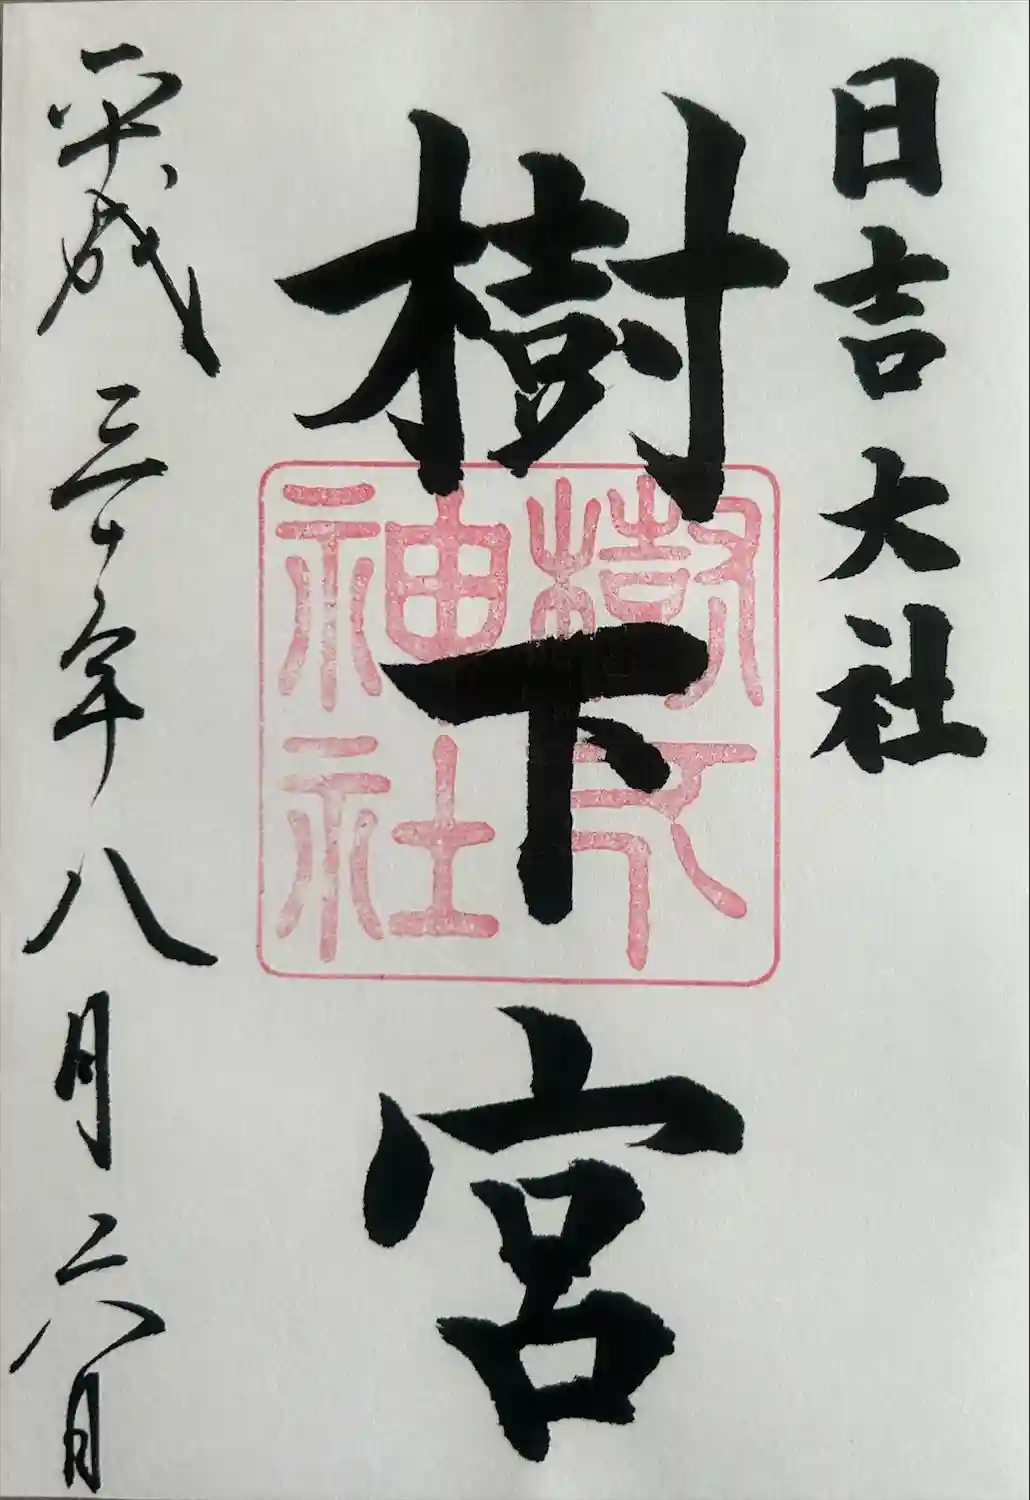 日吉大社
樹下宮
樹下
神社
平成三十年八月二六日